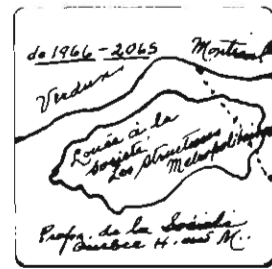 de 1966 - 2065
Montréal
Verdun
Louée à la
Société
Les Structures
Métropolitaines
Propr. de la Société
Quebec H. M.